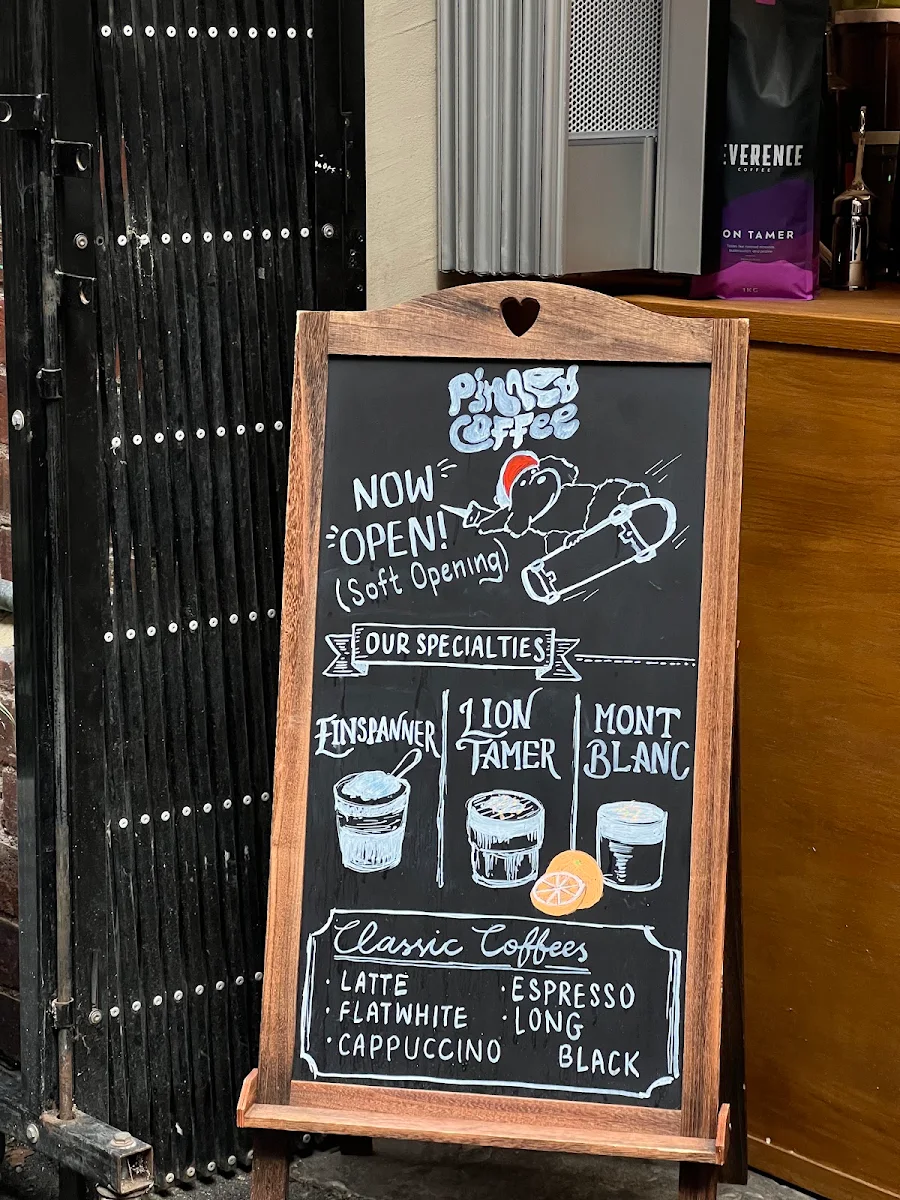 EVERENCE
COFFEE
ON TAMER
1KG
Pinned
Coffee
NOW
OPEN!
(Soft Opening)
OUR SPECIALTIES
EINSPANNER
LION
TAMER
MONT
BLANC
Classic Coffees
· LATTE
· FLATWHITE
· CAPPUCCINO
· ESPRESSO
· LONG
BLACK